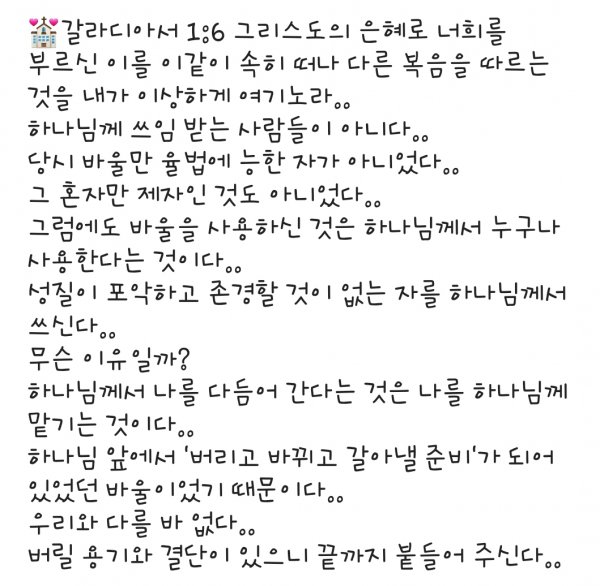 💒갈라디아서 1:6 그리스도의 은혜로 너희를
부르신 이를 이같이 속히 떠나 다른 복음을 따르는
것을 내가 이상하게 여기노라。。
하나님께 쓰임 받는 사람들이 아니다。。
당시 바울만 율법에 능한 자가 아니었다。。
그 혼자만 제자인 것도 아니었다。。
그럼에도 바울을 사용하신 것은 하나님께서 누구나
사용한다는 것이다。。
성질이 포악하고 존경할 것이 없는 자를 하나님께서
쓰신다。。
무슨 이유일까?
하나님께서 나를 다듬어 간다는 것은 나를 하나님께
맡기는 것이다。。
하나님 앞에서 '버리고 바뀌고 갈아낼 준비'가 되어
있었던 바울이었기 때문이다。。
우리와 다를 바 없다。。
버릴 용기와 결단이 있으니 끝까지 붙들어 주신다。。